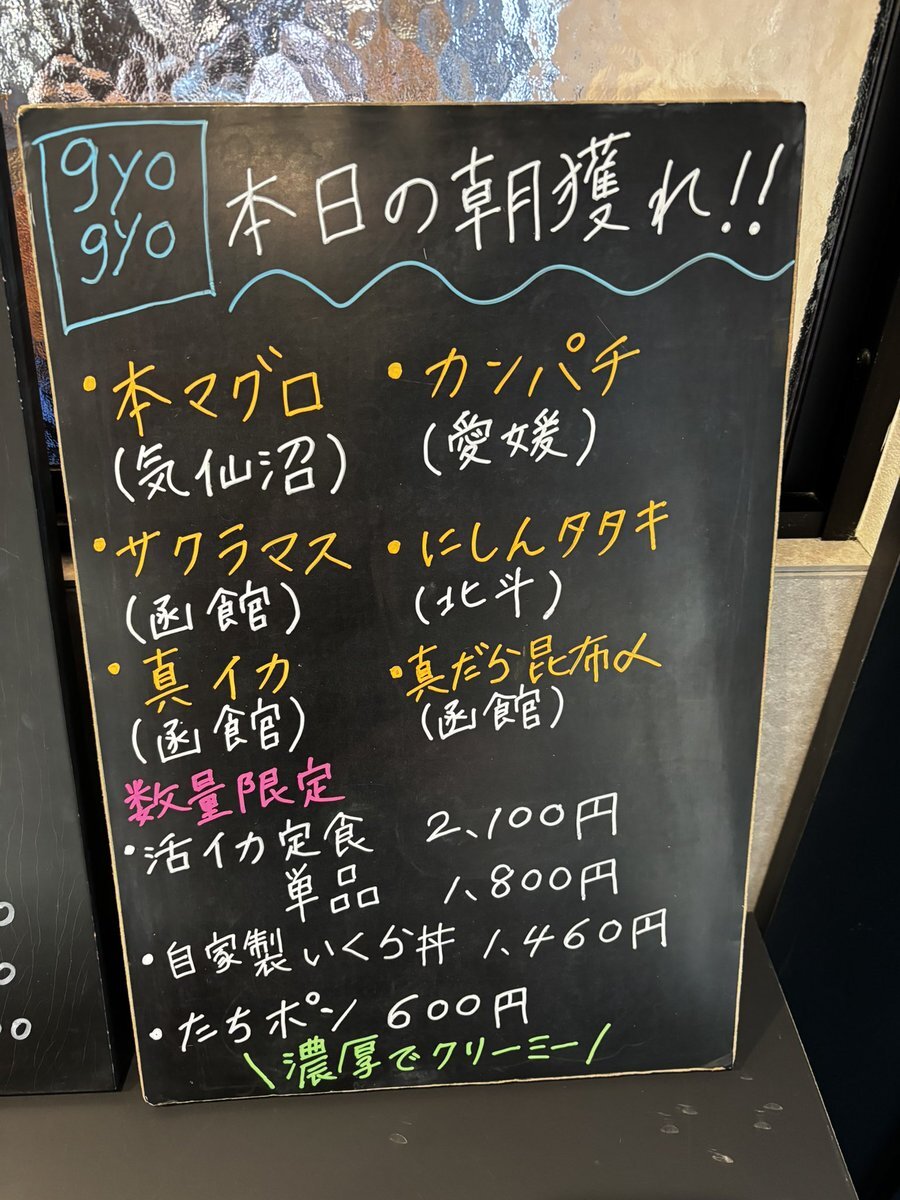 gyo
gyo
本日の朝獲れ!!
・本マグロ
(気仙沼)
・カンパチ
(愛媛)
・サクラマス
(函館)
・にしんタタキ
(北斗)
・真イカ
(函館)
・真だら昆布〆
(函館)
数量限定
・活イカ定食 2,100円
単品 1,800円
・自家製いくら丼 1,460円
・たちポン 600円
\濃厚でクリーミー/